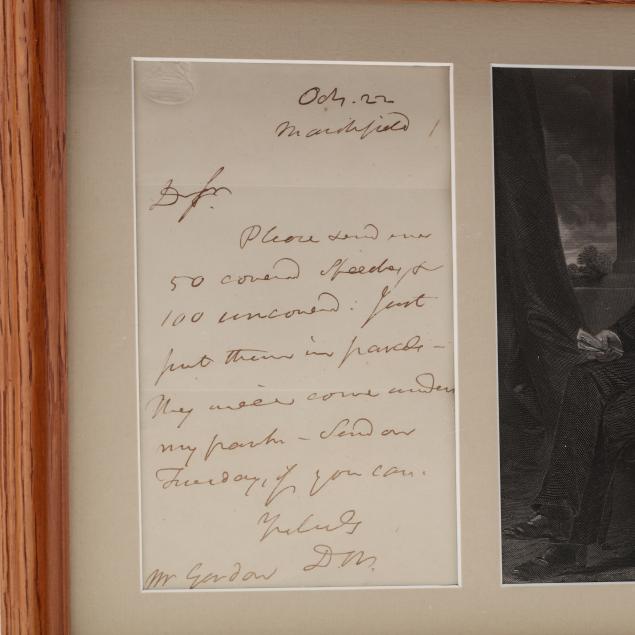 Oct. 22
Marshfield
D Sr.
Please send me
50 covered Speeches &
100 uncovered: Just
put them in parcels -
they will come under
my frank - Send on
Tuesday, if you can.
Yrs
D W.
Mr Gordon